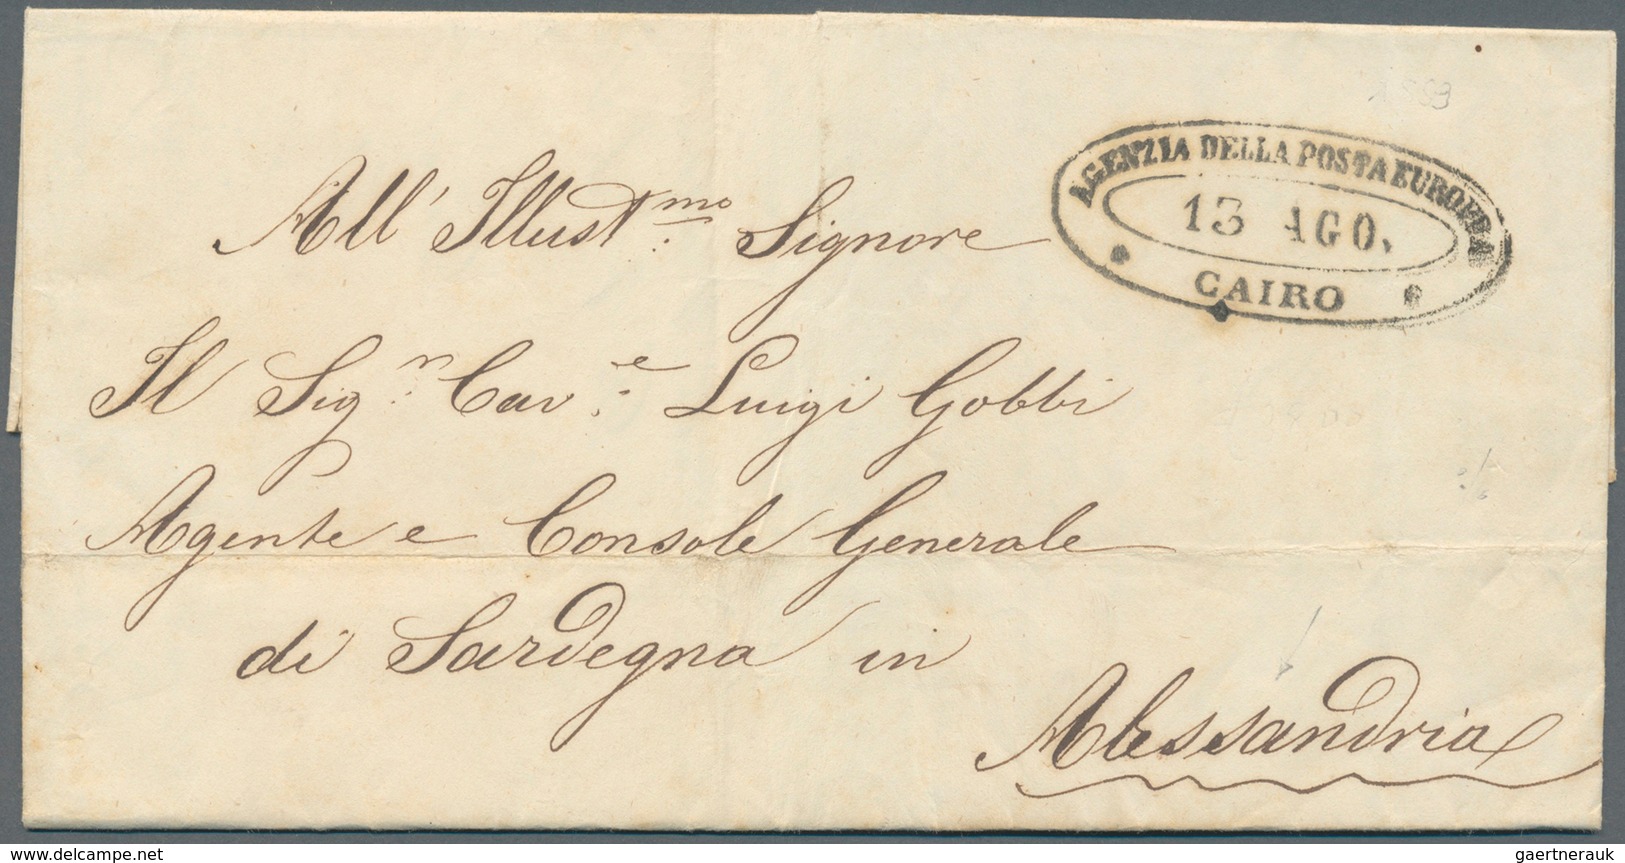 AGENZIA DELLA POSTA EUROPEA
13 AGO.
CAIRO
All' Illust.mo Signore
Il Sig.n Cav.e Luigi Gobbi
Agente e Console Generale
di Sardegna in
Alessandria
delcampe.net
gaertnerauk